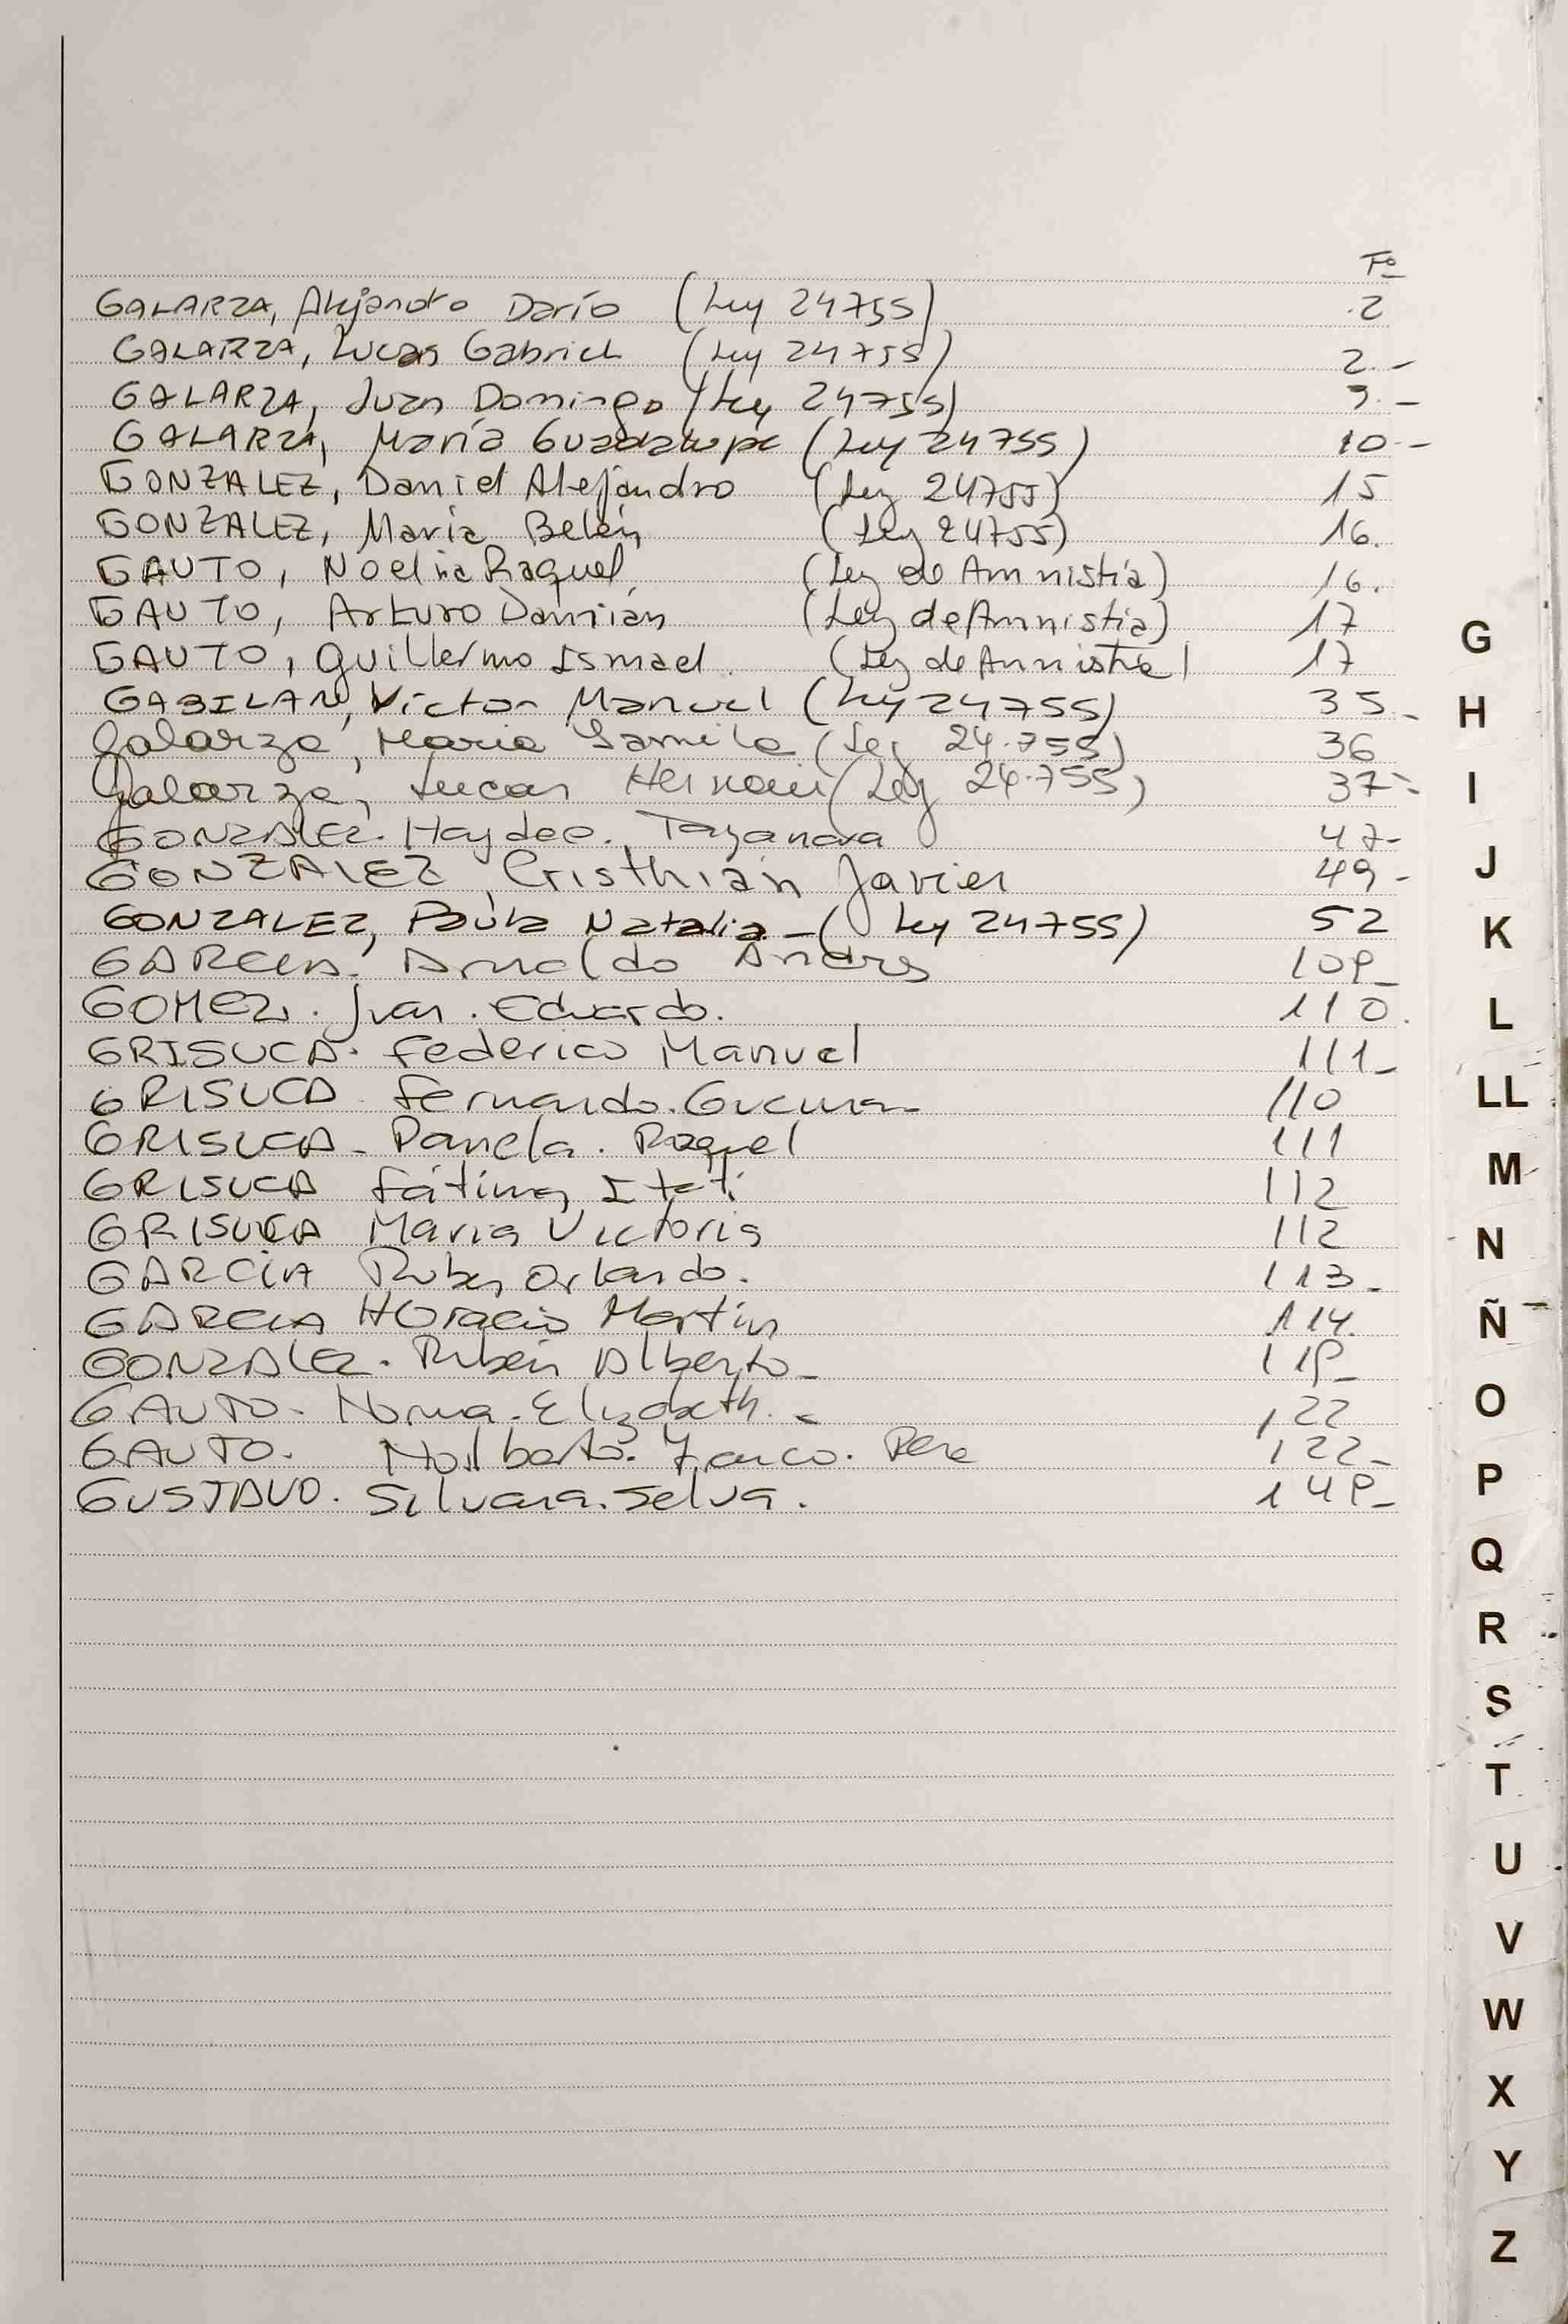 Fº
GALARZA, Alejandro Darío (Ley 24755) 2
GALARZA, Lucas Gabriel (Ley 24755) 2.-
GALARZA, Juan Domingo (Ley 24755) 9.-
GALARZA, María Guadalupe (Ley 24755) 10.-
GONZALEZ, Daniel Alejandro (Ley 24755) 15
GONZALEZ, María Belén (Ley 24755) 16.
GAUTO, Noelia Raquel (Ley de Amnistía) 16.
GAUTO, Arturo Damián (Ley de Amnistia) 17
GAUTO, Guillermo Ismael. (Ley de Amnistía) 17
GABILAN, Victor Manuel (Ley 24755) 35.-
Galarza, Maria Yamila (Ley 24.755) 36
Galarza, Lucas Hernan (Ley 24.755) 37-
GONZALEZ. Haydee. 47-
GONZALEZ, Cristhian Javier 49-
GONZALEZ, Paula Natalia - (Ley 24755) 52
GARCIA. Arnaldo Andres 109-
GOMEZ. Juan. Eduardo. 110.
GRISUCA. Federico Manuel 111-
GRISUCA Fernando. 110
GRISUCA - Pamela. Raquel 111
GRISUCA Fátima Itatí 112
GRISUCA María Victoria 112
GARCIA Ruben Orlando. 113-
GARCIA Horacio Martín 114.
GONZALEZ. Rubén Alberto- 119-
GAUTO. Norma. Elizabeth. - 122
GAUTO. 122-
GUSTAVO. Silvana. Selva. 149-
G
H
I
J
K
L
LL
M
N
Ñ
O
P
Q
R
S
T
U
V
W
X
Y
Z